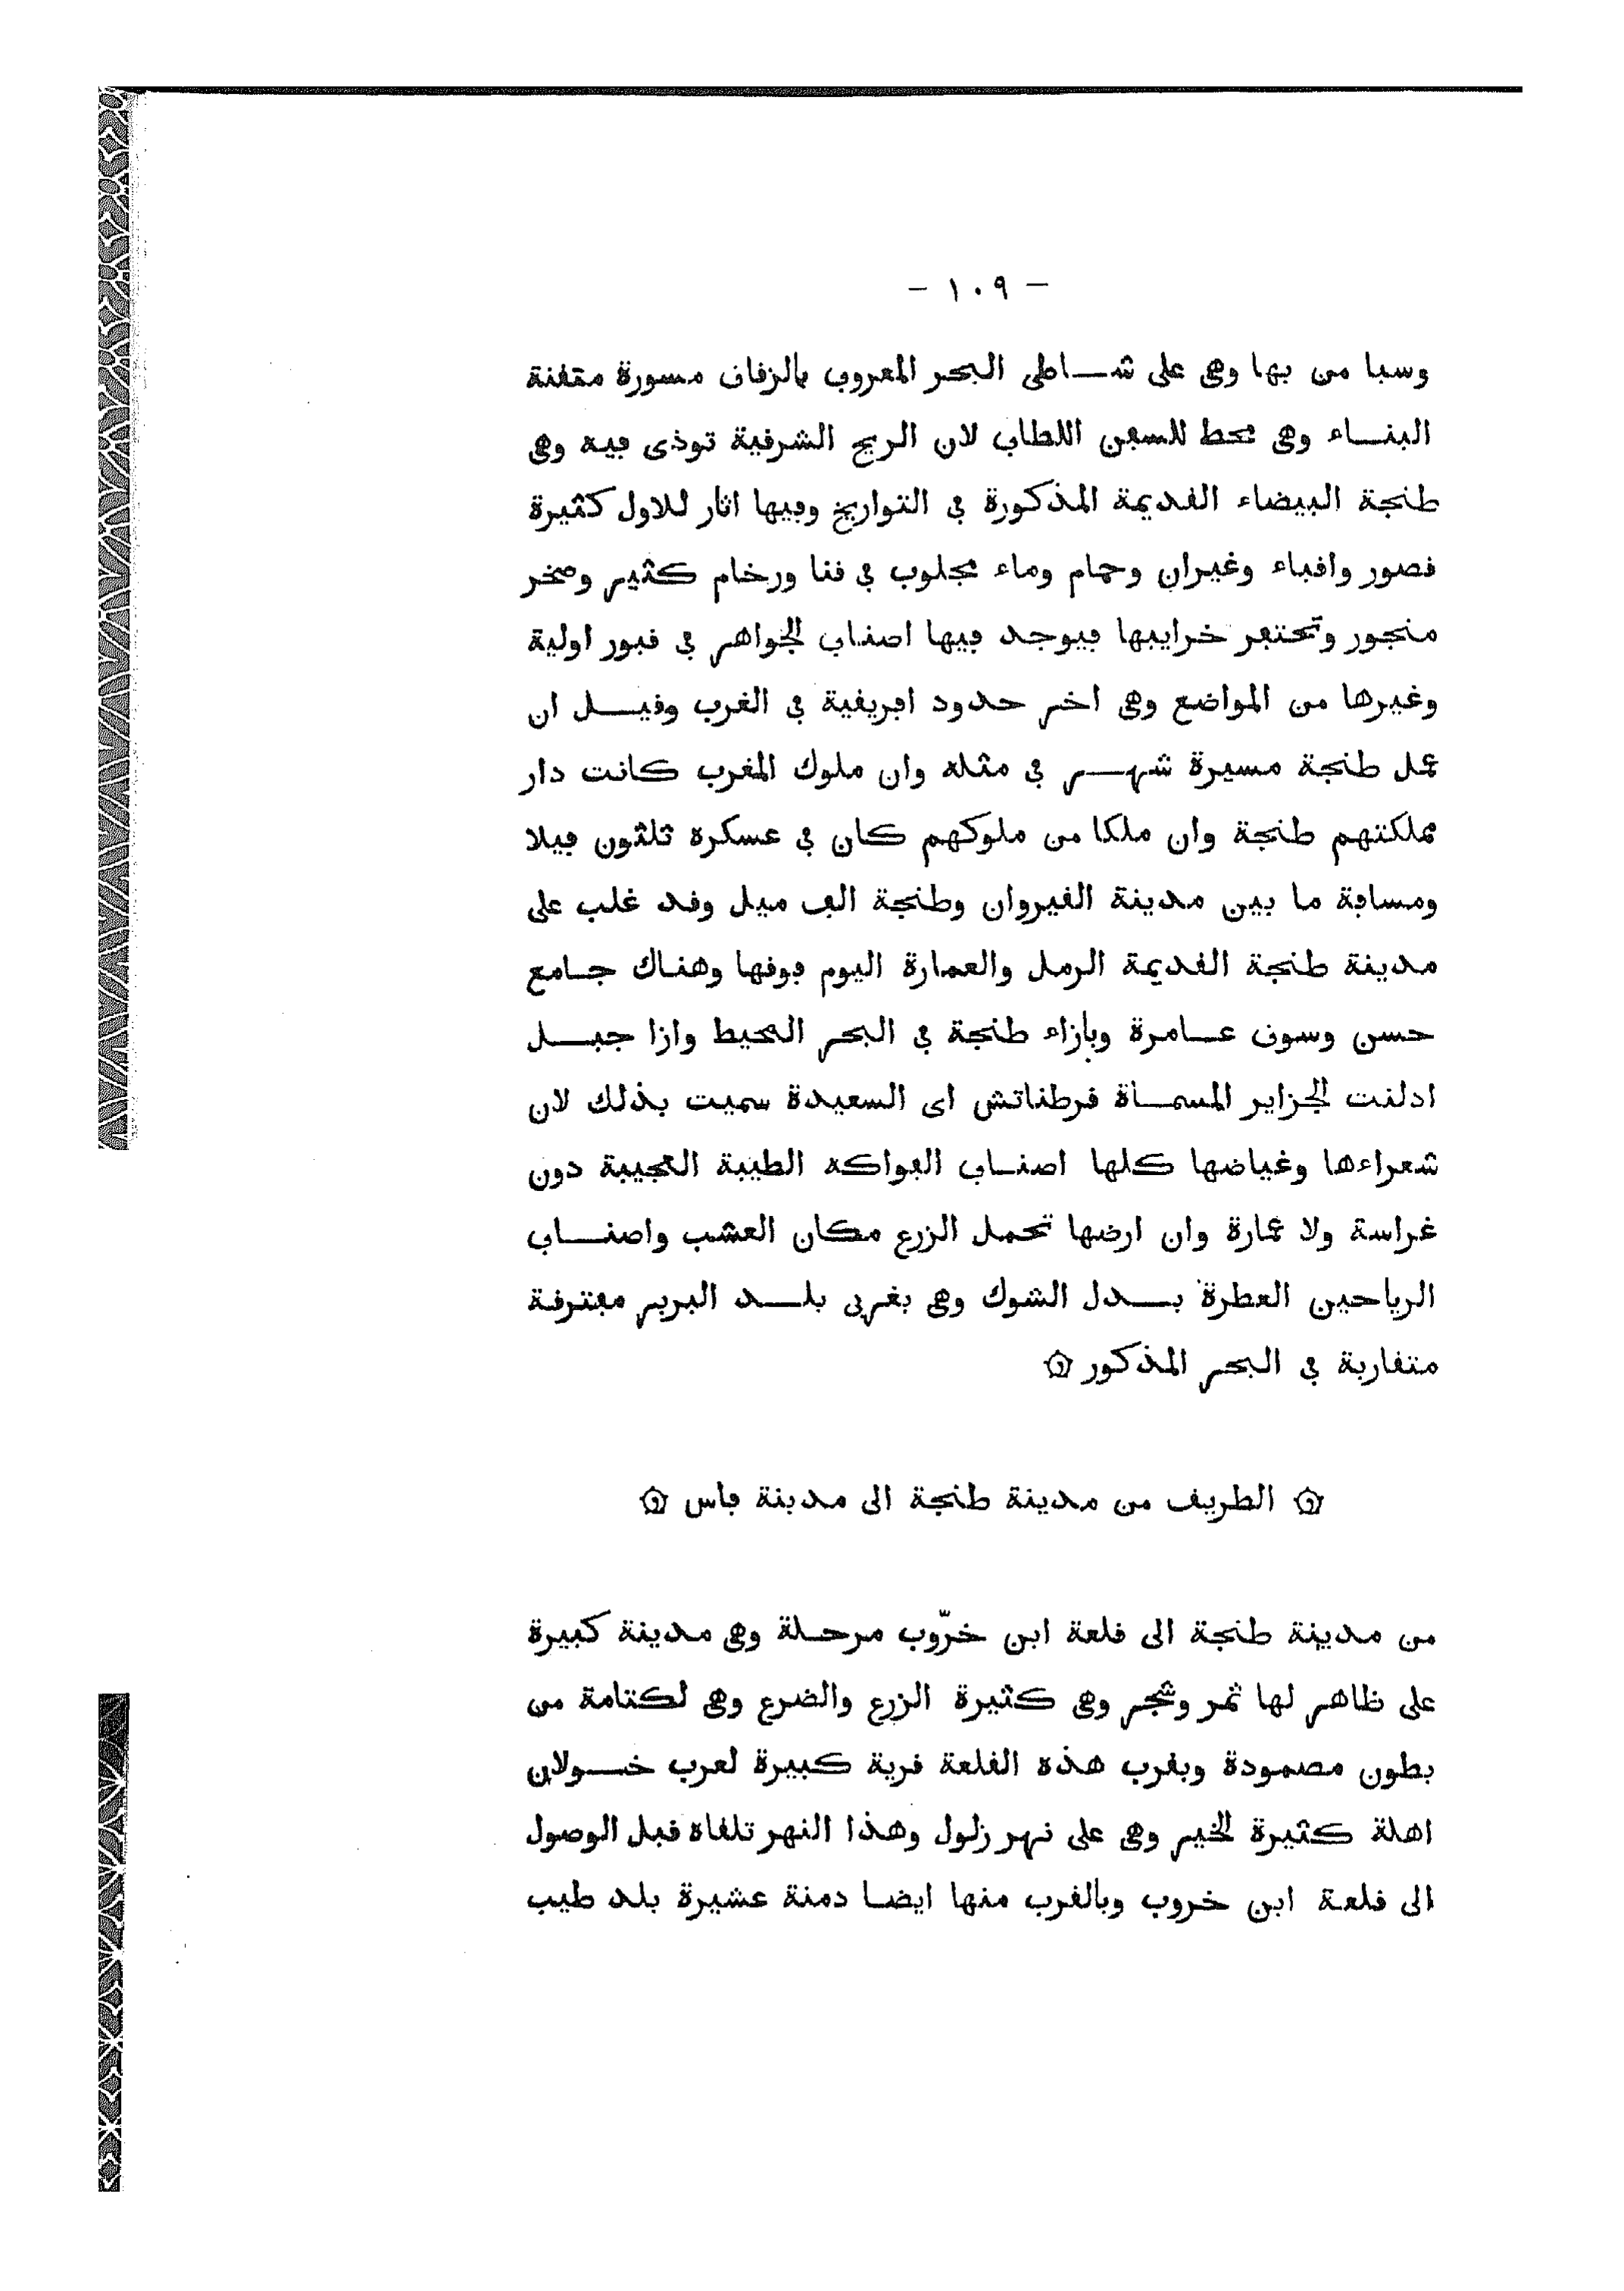 - ١٠٩ -
وسبا من بها وهى على شاطى البحر المعروف بالزقاق مسورة متقنة
البناء وهى محط للسفن اللطاف لان الريح الشرقية توذى فيه وهى
طنجة البيضاء القديمة المذكورة فى التواريخ وفيها اثار للاول كثيرة
قصور واقباء وغيران وحمام وماء مجلوب فى قنا ورخام كثير وصخر
منجور وتحتفر خرايبها فيوجد فيها اصناف الجواهر فى قبور اولية
وغيرها من المواضع وهى اخر حدود افريقية فى الغرب وقيل ان
عمل طنجة مسيرة شهر فى مثله وان ملوك المغرب كانت دار
مملكتهم طنجة وان ملكا من ملوكهم كان فى عسكره ثلثون فيلا
ومسافة ما بين مدينة القيروان وطنجة الف ميل وقد غلب على
مدينة طنجة القديمة الرمل والعمارة اليوم فوقها وهناك جامع
حسن وسوق عامرة وبازاء طنجة فى البحر المحيط وازا جبل
ادلنت الجزاير المسماة فرطناتش اى السعيدة سميت بذلك لان
شعراءها وغياضها كلها اصناف الفواكه الطيبة العجيبة دون
غراسة ولا عمارة وان ارضها تحمل الزرع مكان العشب واصناف
الرياحين العطرة بدل الشوك وهى بغربى بلد البربر مفترقة
متقاربة فى البحر المذكور ۞
۞ الطريق من مدينة طنجة الى مدينة فاس ۞
من مدينة طنجة الى قلعة ابن خرّوب مرحلة وهى مدينة كبيرة
على ظاهر لها ثمر وشجر وهى كثيرة الزرع والضرع وهى لكتامة من
بطون مصمودة وبقرب هذه القلعة قرية كبيرة لعرب خولان
اهلة كثيرة الخير وهى على نهر زلول وهذا النهر تلقاه قبل الوصول
الى قلعة ابن خروب وبالقرب منها ايضا دمنة عشيرة بلد طيب